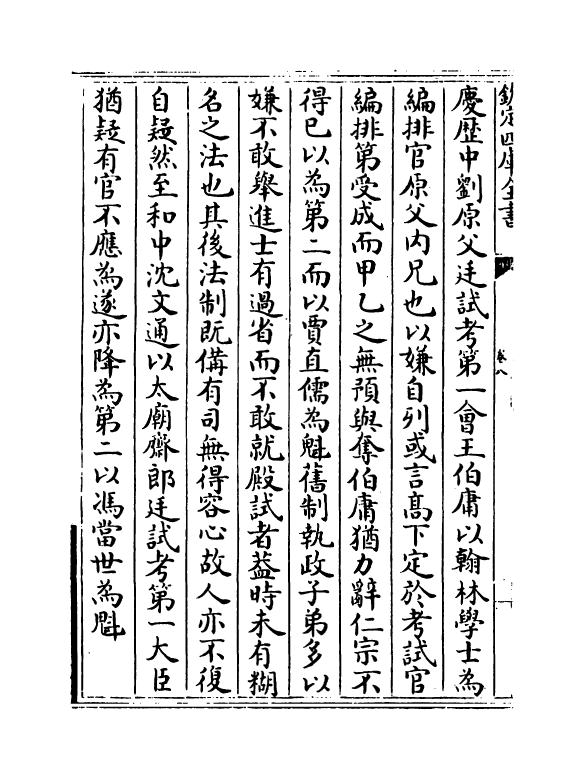 欽定四庫全書
卷八
慶歷中劉原父廷試考第一會王伯庸以翰林學士為
編排官原父内兄也以嫌自列或言髙下定於考試官
編排第受成而甲乙之無預與奪伯庸猶力辭仁宗不
得已以為第二而以賈直儒為魁舊制執政子弟多以
嫌不敢舉進士有過省而不敢就殿試者葢時未有糊
名之法也其後法制既備有司無得容心故人亦不復
自疑然至和中沈文通以太廟齋郎廷試考第一大臣
猶疑有官不應為遂亦降為第二以馮當世為魁